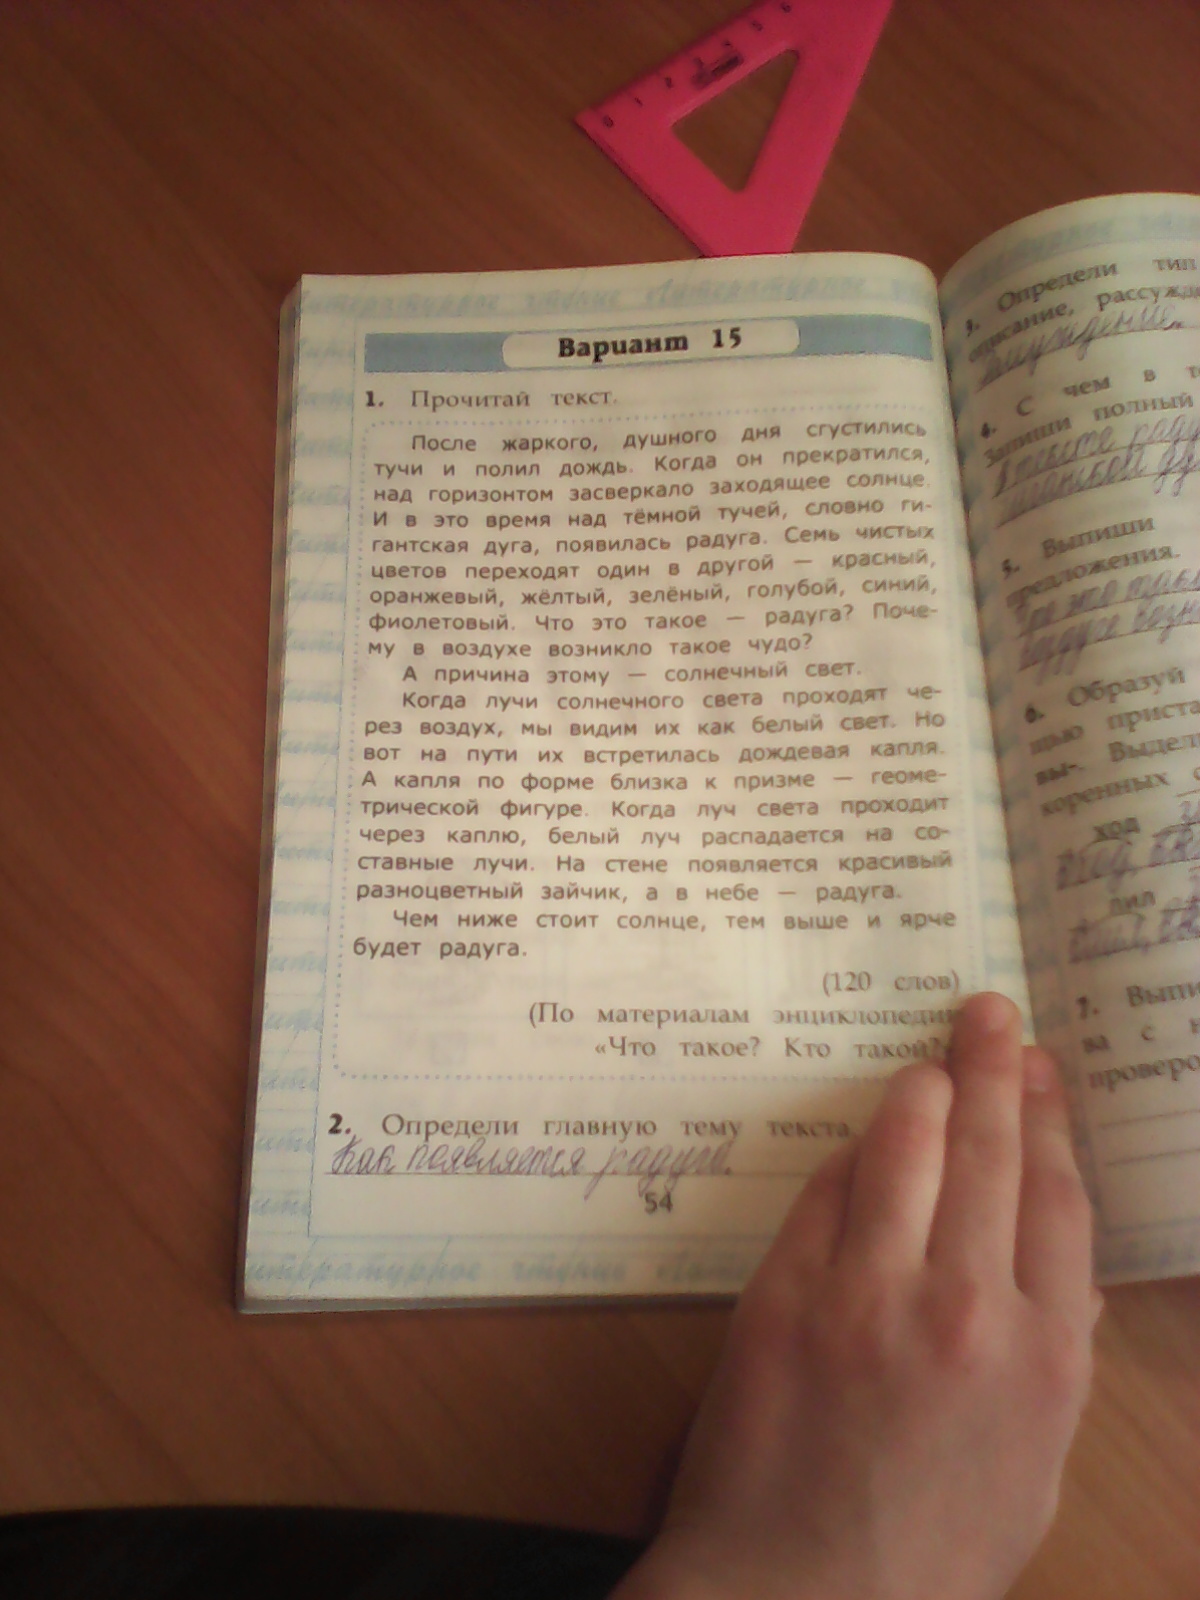 Вариант 15
1. Прочитай текст.
После жаркого, душного дня сгустились
тучи и полил дождь. Когда он прекратился,
над горизонтом засверкало заходящее солнце.
И в это время над тёмной тучей, словно ги-
гантская дуга, появилась радуга. Семь чистых
цветов переходят один в другой — красный,
оранжевый, жёлтый, зелёный, голубой, синий,
фиолетовый. Что это такое — радуга? Поче-
му в воздухе возникло такое чудо?
А причина этому — солнечный свет.
Когда лучи солнечного света проходят че-
рез воздух, мы видим их как белый свет. Но
вот на пути их встретилась дождевая капля.
А капля по форме близка к призме — геоме-
трической фигуре. Когда луч света проходит
через каплю, белый луч распадается на со-
ставные лучи. На стене появляется красивый
разноцветный зайчик, а в небе — радуга.
Чем ниже стоит солнце, тем выше и ярче
будет радуга.
(120 слов)
(По материалам энциклопедии
«Что такое? Кто такой?»
2. Определи главную тему текста.
Как появляется радуга.
54
3. Определи тип
описание, рассужд
4. С чем в
Запиши полный
5. Выпиши
предложения.
6. Образуй
щью приста
вы-. Выдели
коренных
ход
пил
7. Выпи
ва с
проверо
0 1 2 3 4 5 6